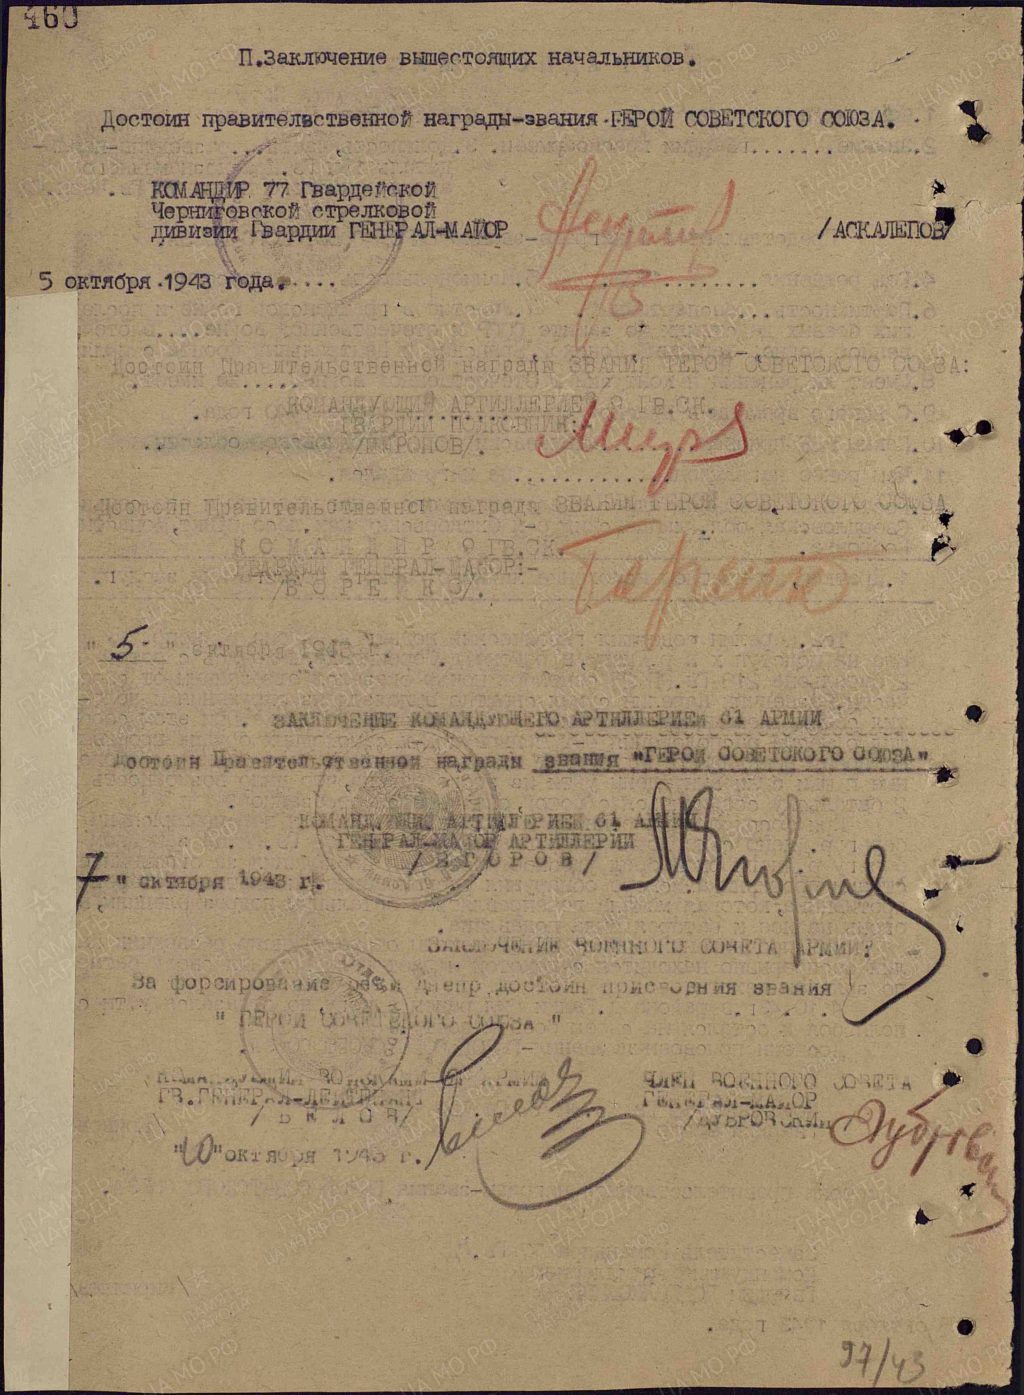 460
П.Заключение вышестоящих начальников.
Достоин правительственной награды-звания ГЕРОЙ СОВЕТСКОГО СОЮЗА.
КОМАНДИР 77 Гвардейской
Черниговской стрелковой
дивизии Гвардии ГЕНЕРАЛ-МАЙОР /АСКАЛЕПОВ/
5 октября 1943 года.
Достоин Правительственной награды ЗВАНИЯ ГЕРОЙ СОВЕТСКОГО СОЮЗА:
КОМАНДУЮЩИЙ АРТИЛЛЕРИЕЙ 9 ГВ.СК.
ГВАРДИИ ПОЛКОВНИК:
Достоин Правительственной награды ЗВАНИЯ ГЕРОЙ СОВЕТСКОГО СОЮЗА
КОМАНДИР 9 ГВ.СК.
ГВАРДИИ ГЕНЕРАЛ-МАЙОР:-
"5" октября 1943 г.
ЗАКЛЮЧЕНИЕ КОМАНДУЮЩЕГО АРТИЛЛЕРИЕЙ 61 АРМИИ
Достоин Правительственной награды звания "ГЕРОЙ СОВЕТСКОГО СОЮЗА"
КОМАНДУЮЩИЙ АРТИЛЛЕРИЕЙ 61 АРМИИ
ГЕНЕРАЛ-МАЙОР АРТИЛЛЕРИИ
/ЕГОРОВ/
7 " октября 1943 г.
ЗАКЛЮЧЕНИЕ ВОЕННОГО СОВЕТА АРМИИ:
За форсирование реки Днепр достоин присвоения звания
" ГЕРОЙ СОВЕТСКОГО СОЮЗА "
КОМАНДУЮЩИЙ ВОЙСКАМИ 61 АРМИИ ЧЛЕН ВОЕННОГО СОВЕТА
ГВ.ГЕНЕРАЛ-ЛЕЙТЕНАНТ ГЕНЕРАЛ-МАЙОР
/БЕЛОВ/ /ДУБРОВСКИЙ
"10" октября 1943 г.
97/43